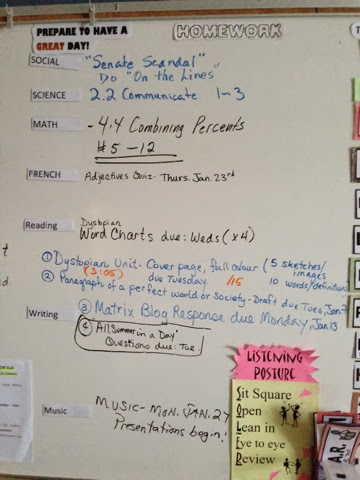 PREPARE TO HAVE A
GREAT DAY!
HOMEWORK
SOCIAL
"Senate Scandal"
Do "On the Lines"
SCIENCE
2.2 Communicate 1-3
MATH
- 4.4 Combining Percents
#5-12
FRENCH
Adjectives Quiz- Thurs. Jan. 23rd
Reading
Dysbpian
Word Charts due: Weds (x4)
① Dystopian Unit- Cover page, full colour (5 sketches/
images
(S:05) due Tuesday. /15 10 words/definitions
② Paragraph of a perfect world or Society- Draft due Tues, Jan
Writing
③ Matrix Blog Response due Monday, Jan 13
④ "All Summer in a Day"
Questions due: Tue.
Music
MUSIC- MON. JAN. 27
Presentations begin!
LISTENING
POSTURE
Sit Square
Open
Lean in
Eye to eye
Review
A.R.